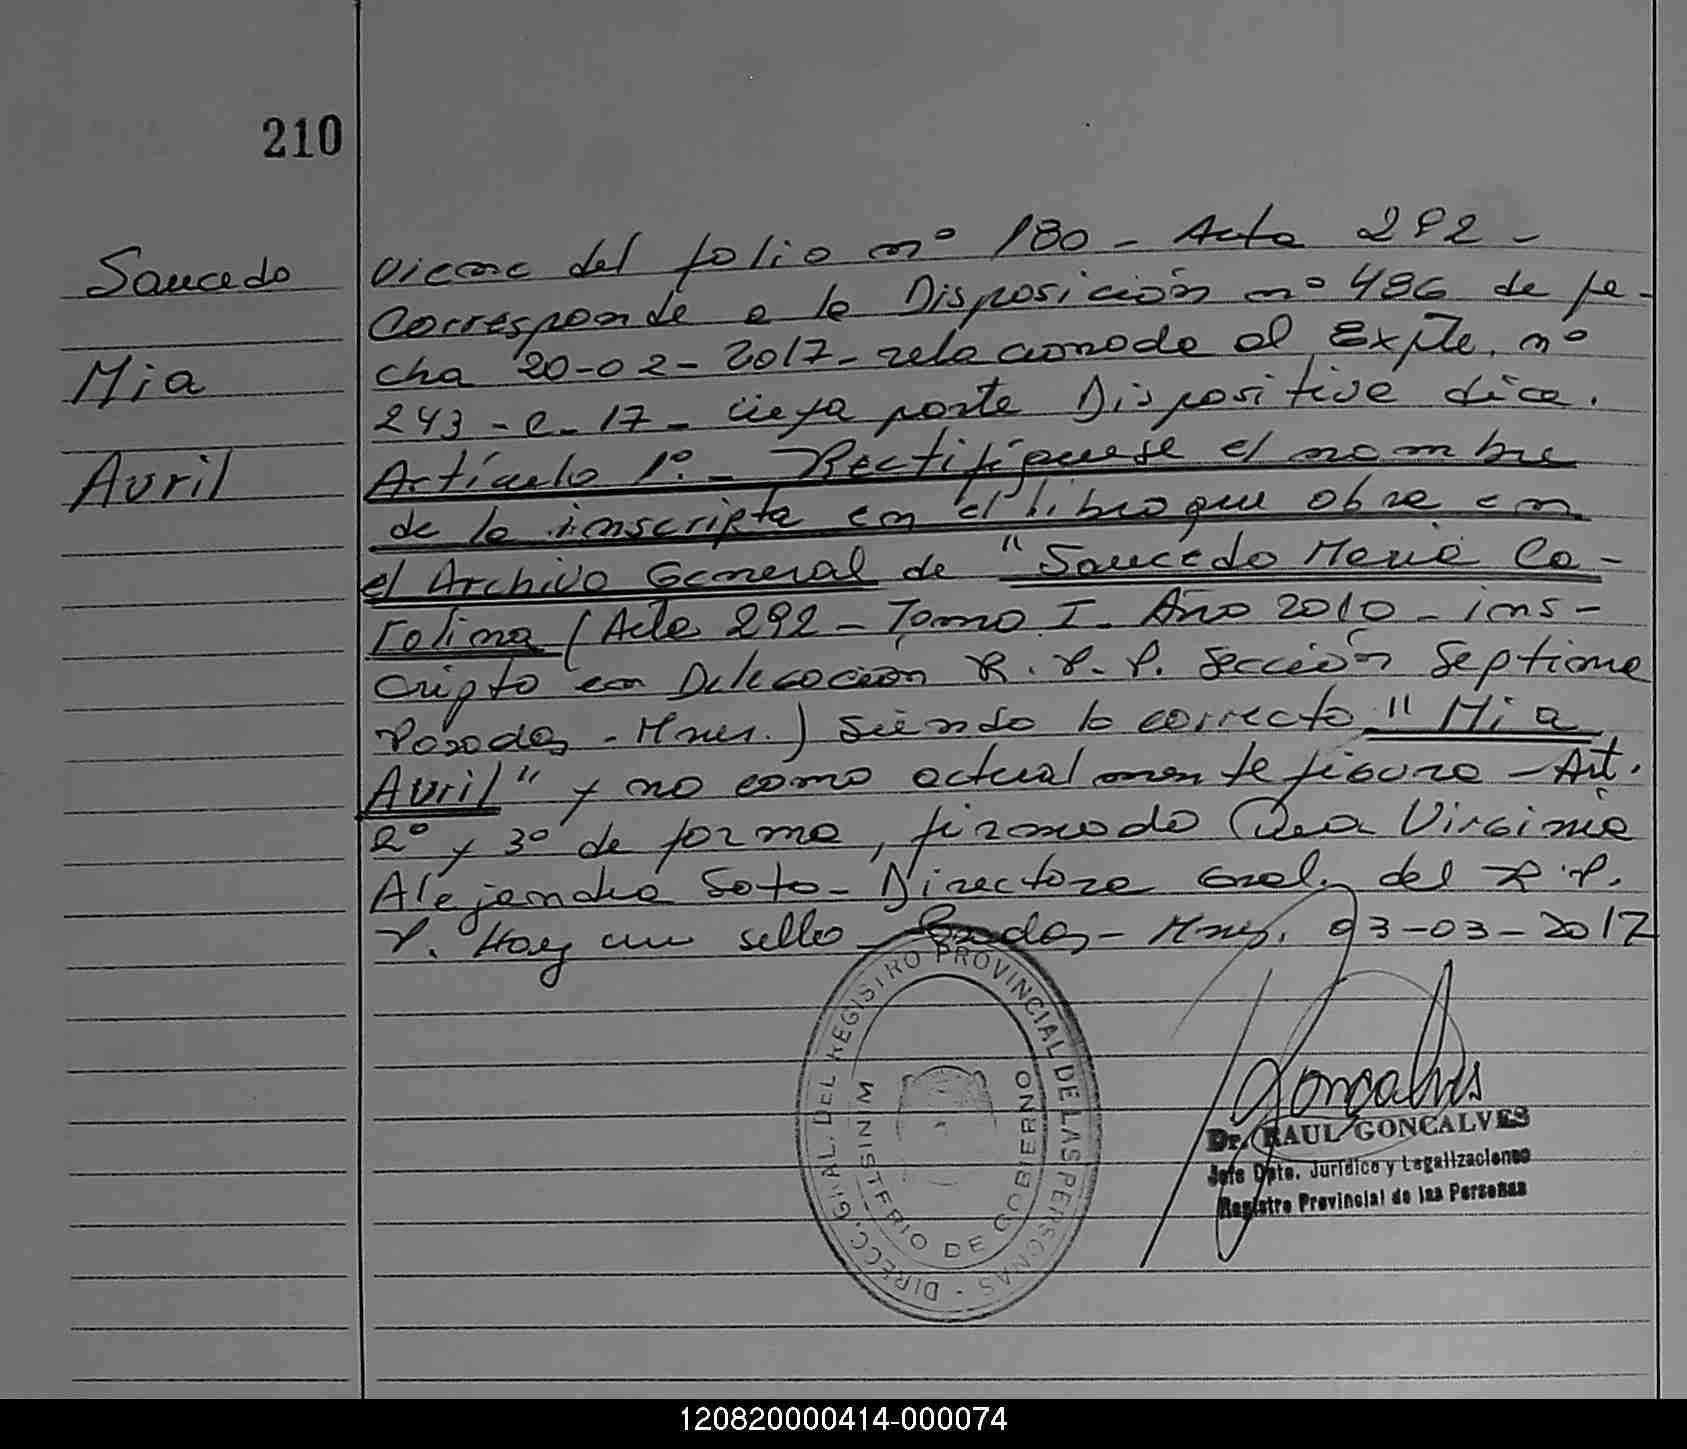 210
Saucedo
Mia
Avril
Viene del folio nº 180 - Acta 292 -
Corresponde a la Disposición nº 486 de fe-
cha 20-02-2017- relacionado al Expte. nº
243 - C - 17 - cuya parte Dispositiva dice.
Artículo 1º - Rectifíquese el nombre
de la inscripta en el libro que obra en
el Archivo General de "Saucedo Maria Ca-
rolina (Acta 292 - Tomo I - Año 2010 - ins-
cripto en Delegación R. P. P. Sección Septima
Posadas - Mnes.) Siendo lo correcto "Mia
Avril" y no como actualmente figura - Art.
2º y 3º de forma, firmado Dra Virginia
Alejandra Soto - Directora Gral. del R. P.
P. Hay un sello - Posadas - Mnes, 03-03-2017
DIRECC. GRAL. DEL REGISTRO PROVINCIAL DE LAS PERSONAS
MINISTERIO DE GOBIERNO
Goncalves
Dr. RAUL GONCALVES
Jefe Dpto. Jurídico y Legalizaciones
Registro Provincial de las Personas
120820000414-000074